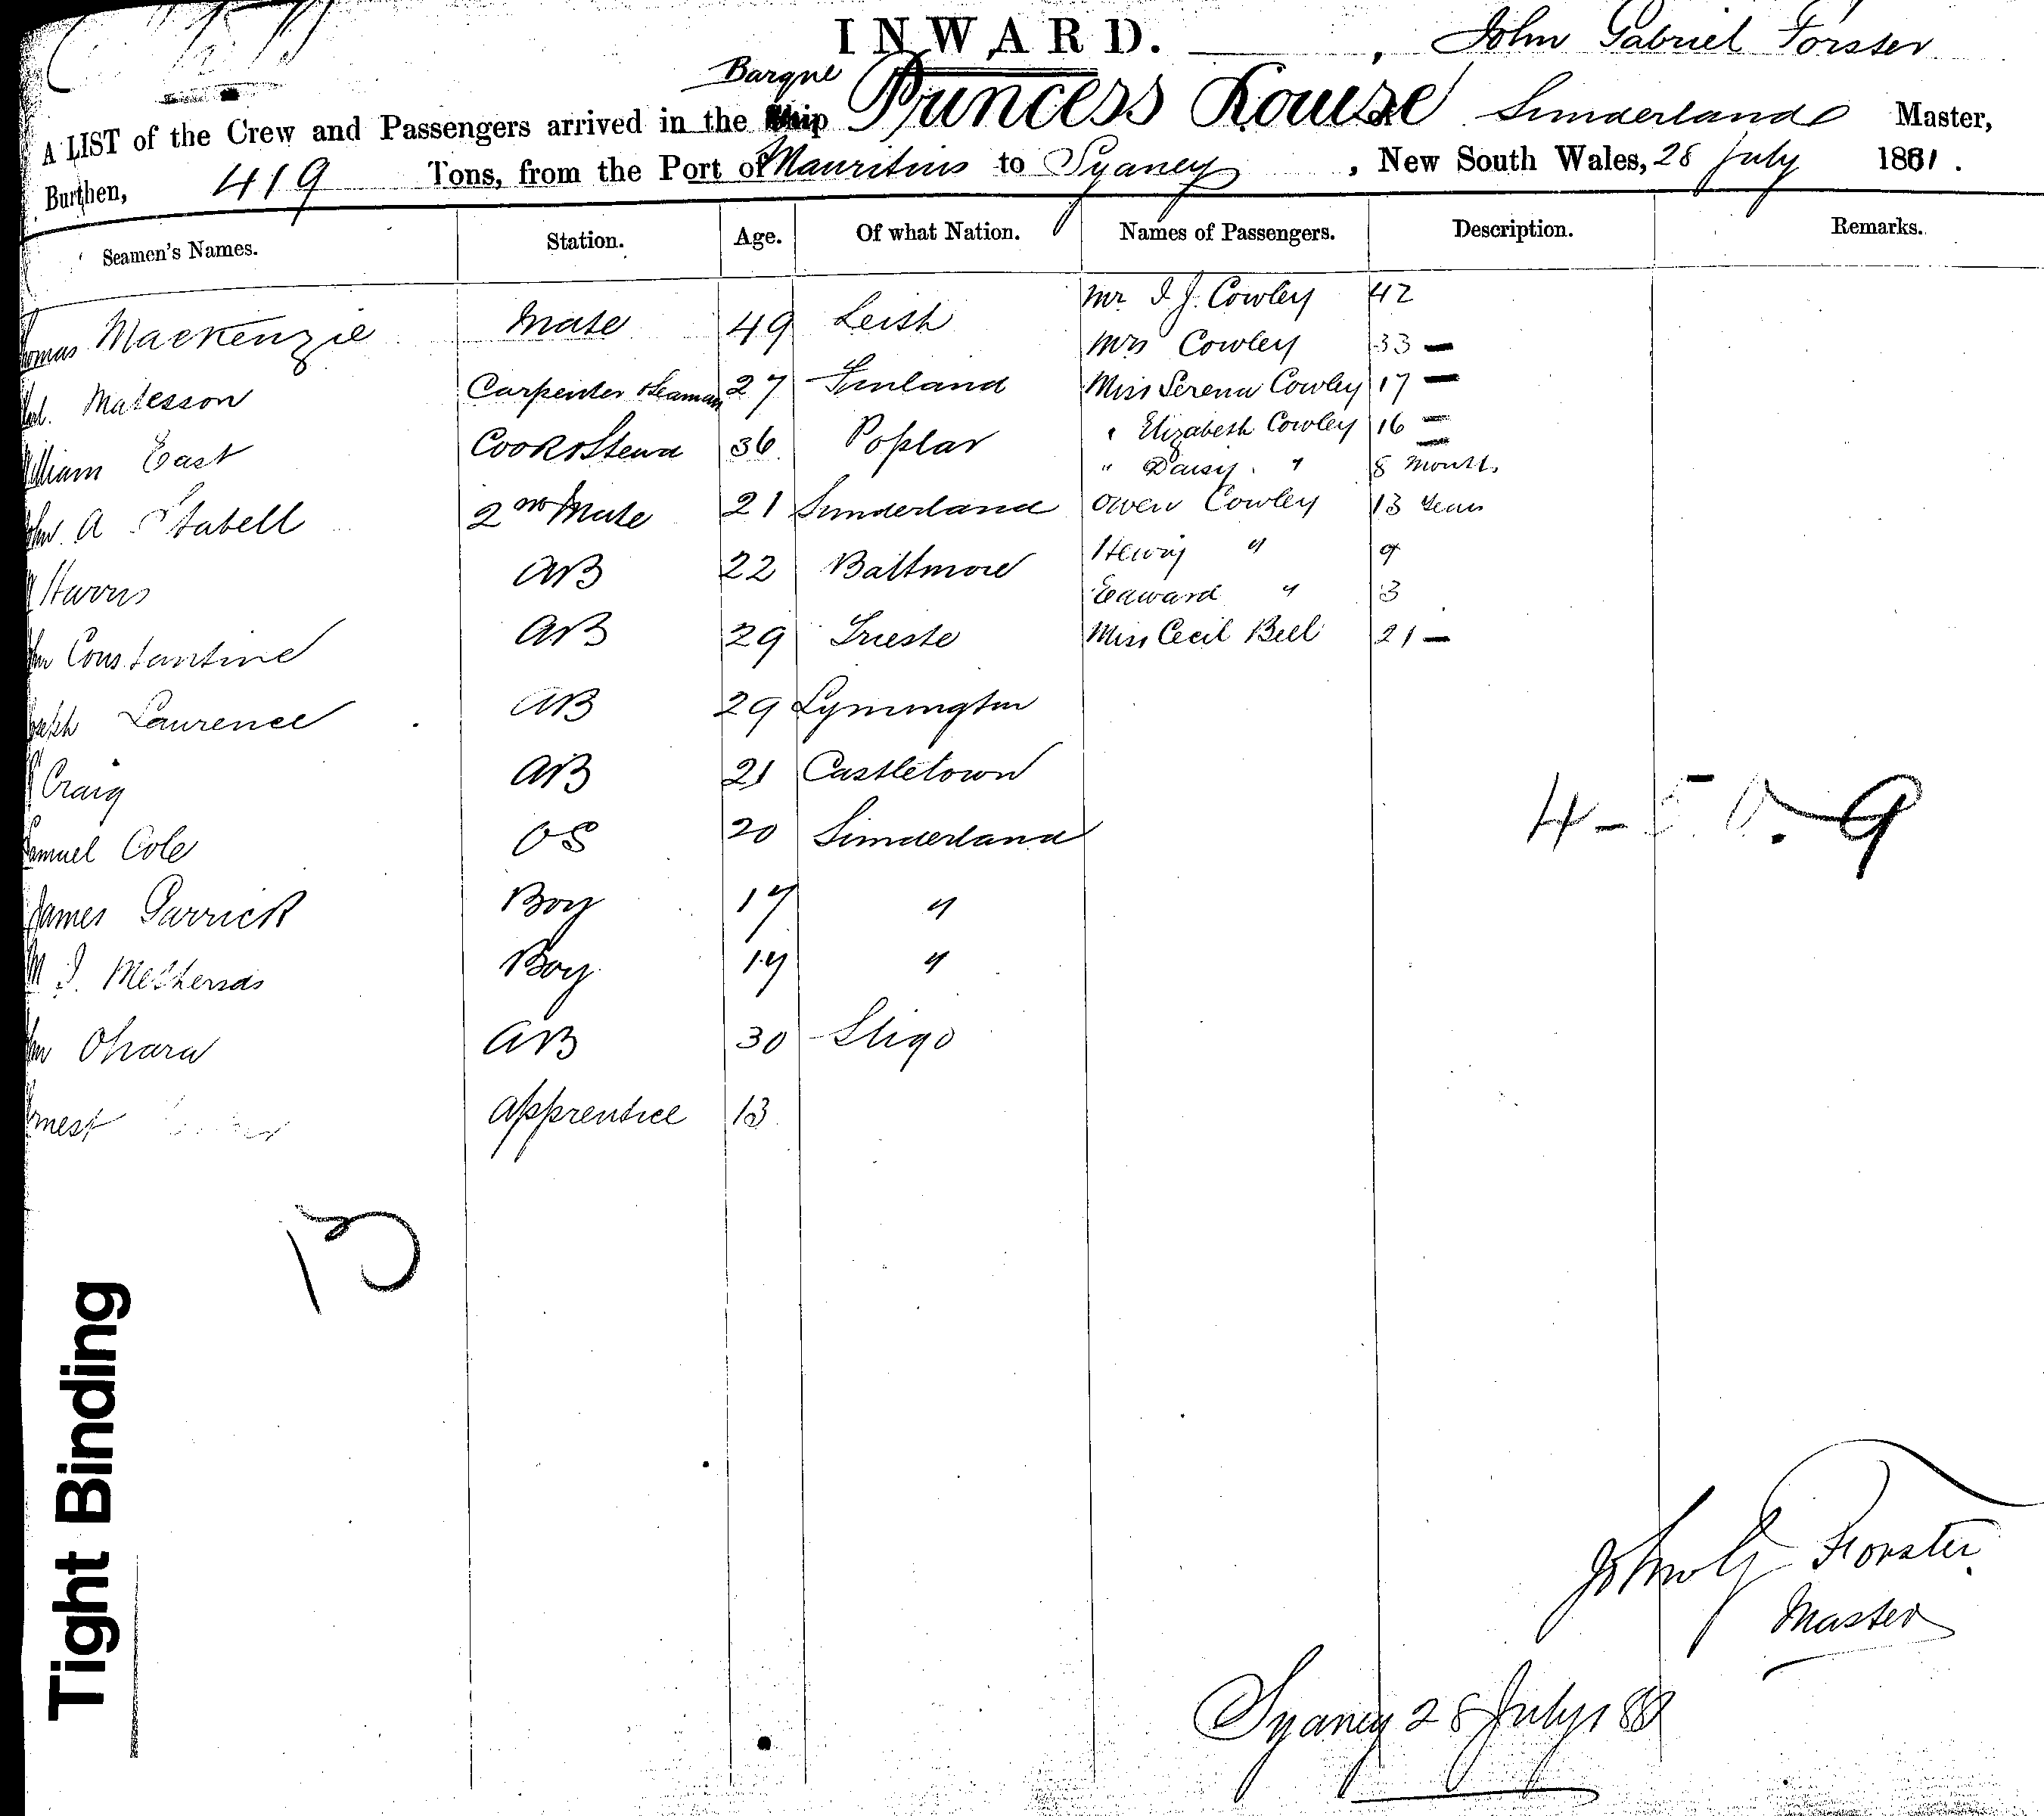 INWARD. John Gabriel Forster
Barque
A LIST of the Crew and Passengers arrived in the Ship Princess Louise Sunderland Master,
Burthen, 419 Tons, from the Port of Mauritius to Sydney, New South Wales, 28 July 1881.
Seamen's Names. Station. Age. Of what Nation. Names of Passengers. Description. Remarks.
Mr I J. Cowley 42
omas Mackenzie Mate 49 Leith
Mrs Cowley 33 —
Matesson Carpenter & Seaman 27 Finland Miss Serena Cowley 17 —
illiam East Cook & Stewd 36 Poplar " Elizabeth Cowley 16 =
" Daisy. " 8 months
A Stabell 2nd Mate 21 Sunderland Owen Cowley 13 Years
Harris AB 22 Baltimore Henry " 9
Edward " 3
Constantine AB 29 Trieste Miss Cecil Bell 21 —
oseph Laurence AB 29 Lymington
Craig AB 21 Castletown
Samuel Cole OS 20 Sunderland
4 - 5. 0. 9
James Garrick Boy 17 "
M I. Metherads Boy 17 "
Ohara AB 30 Sligo
rnest Apprentice 13
13
John G Forster.
Master
Sydney 28 July 188
Tight Binding